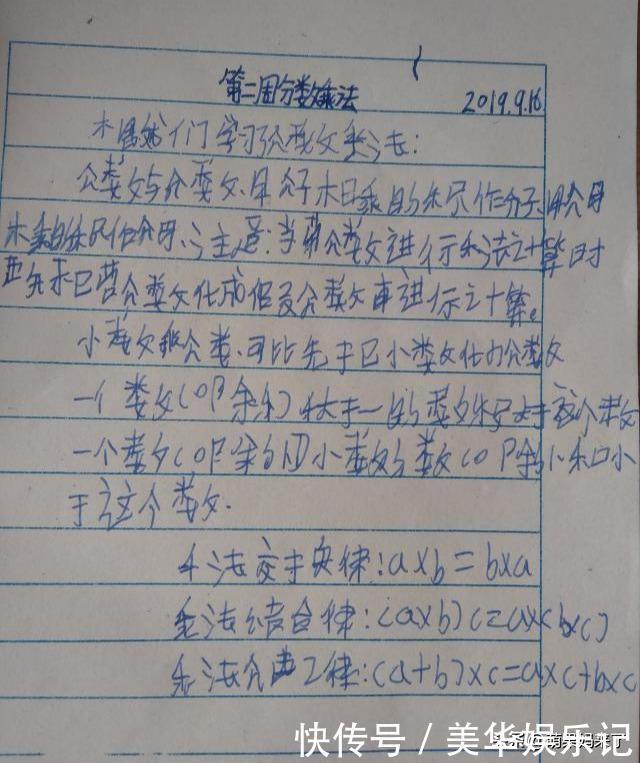 第二周分数乘法 2019.9.16
本周我们学习了分数乘法:
分数与分数,用分子相乘的积作分子,用分母
相乘的积作分母,注意:当带分数进行乘法计算时
要先把带分数化成假分数再进行计算。
小数乘分数,可以先把小数化为分数
一个数(0除外)大于一的数,积大于这个数
一个数(0除外)小数的数(0除外)积小
于这个数.
乘法交换律:a×b=b×a
乘法结合律:(a×b)c=a×(b×c)
乘法分配律:(a+b)×c=a×c+b×c
快传号/美华娱乐记
头条@萌果妈来了